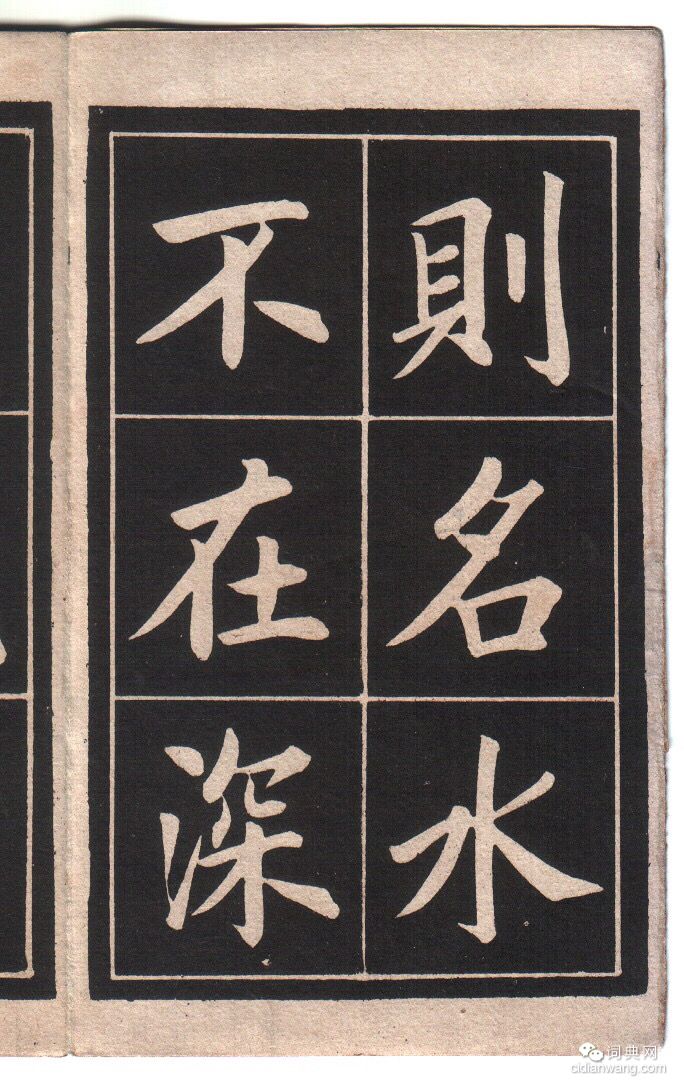 則名水
不在深
词典网
cidianwang.com